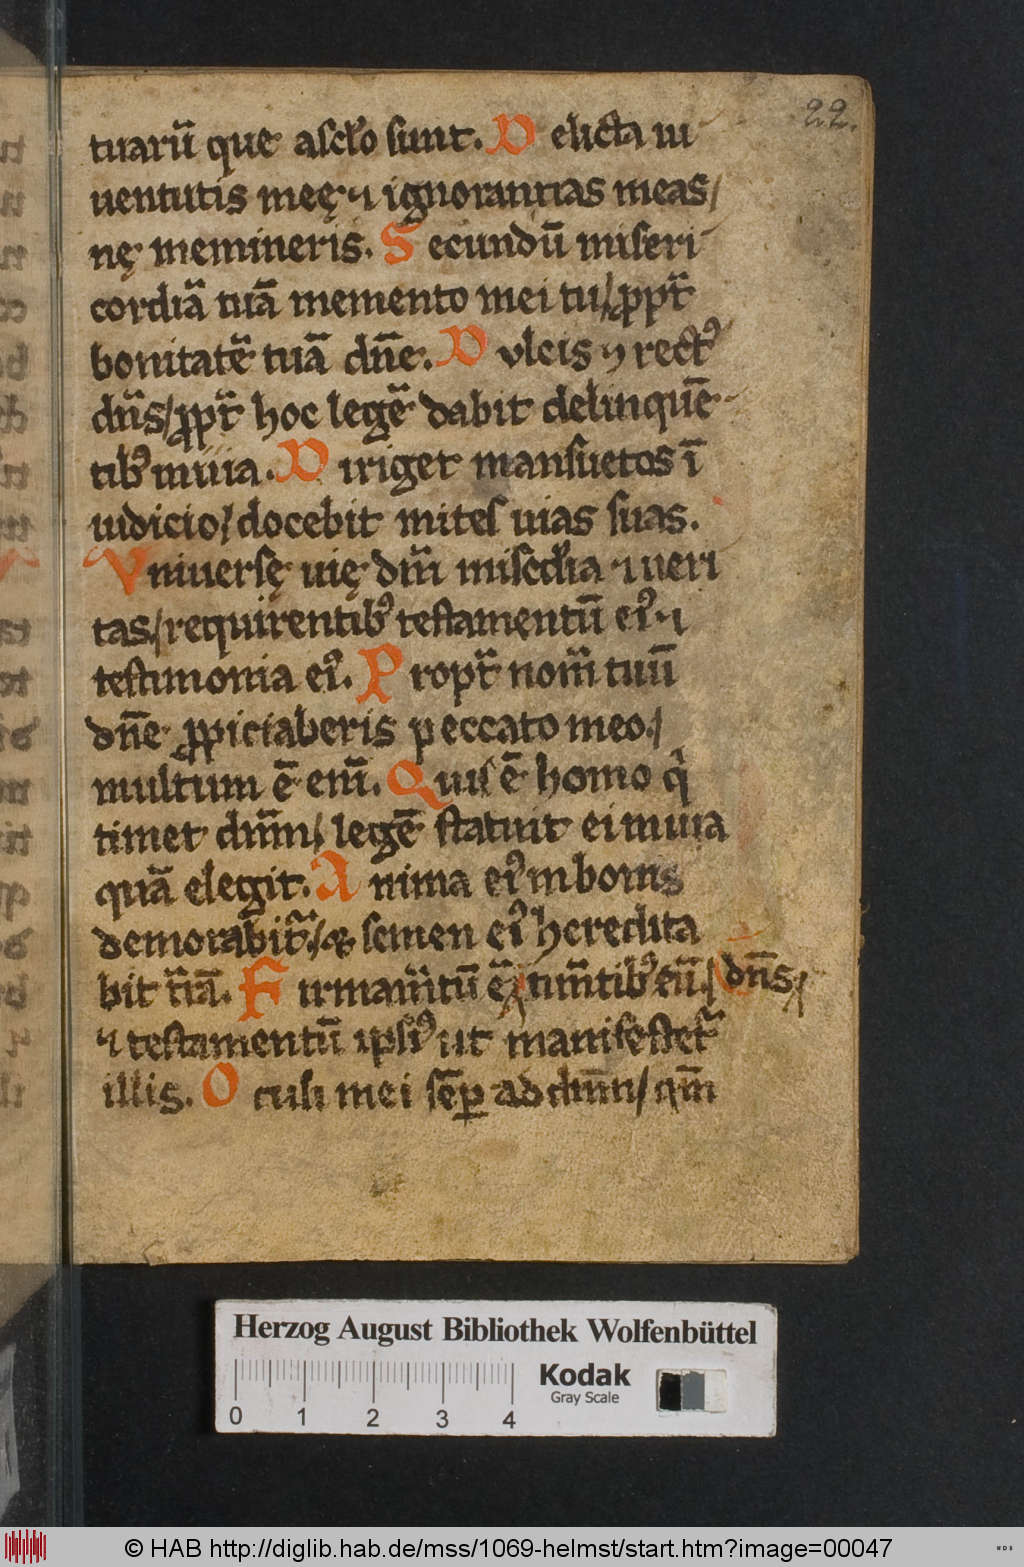 22.
tuarū que a sclo sunt. D elicta iu
uentutis meę ⁊ ignorantias meas/
nę memineris. S ecundū miseri
cordiā tuā memento mei tu/ ppt̄
bonitatē tuā dn̄e. D ulcis ⁊ rectꝰ
dn̄s/ ppt̄ hoc legē dabit delinquē
tibꝰ in uia. D iriget mansuetos ī
iudicio/ docebit mites uias suas.
Vniuersę uię dn̄i misc̄dia ⁊ ueri
tas/ requirentibꝰ testamentū eiꝰ ⁊
testimonia eiꝰ. P ropt̄ nom̄ tuū
dn̄e ppiciaberis peccato meo./
multum ē eni̅. Quis ē homo qⁱ
timet dn̄m/ legē statuit ei in uia
quā elegit. A nima eiꝰ in bonis
demorabit̄/ & semen eiꝰ heredita
bit t̄rā. F irmam̄tū ē timn̄tibꝰ eū/ dn̄s/
⁊ testamentū ipsiꝰ ut manifestet̄
illis. O culi mei sēp ad dn̄m/ qm̄
Herzog August Bibliothek Wolfenbüttel
Kodak
Gray Scale
0 1 2 3 4
© HAB http://diglib.hab.de/mss/1069-helmst/start.htm?image=00047